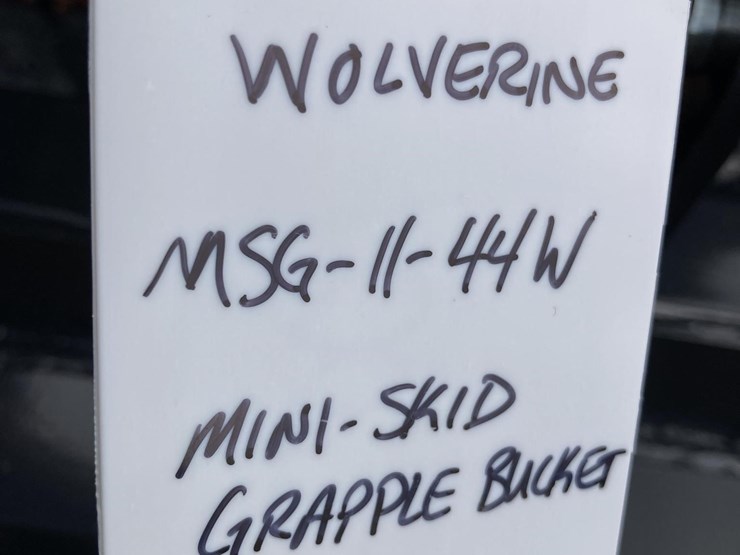 WOLVERINE
MSG-11-44W
MINI-SKID
GRAPPLE BUCKET